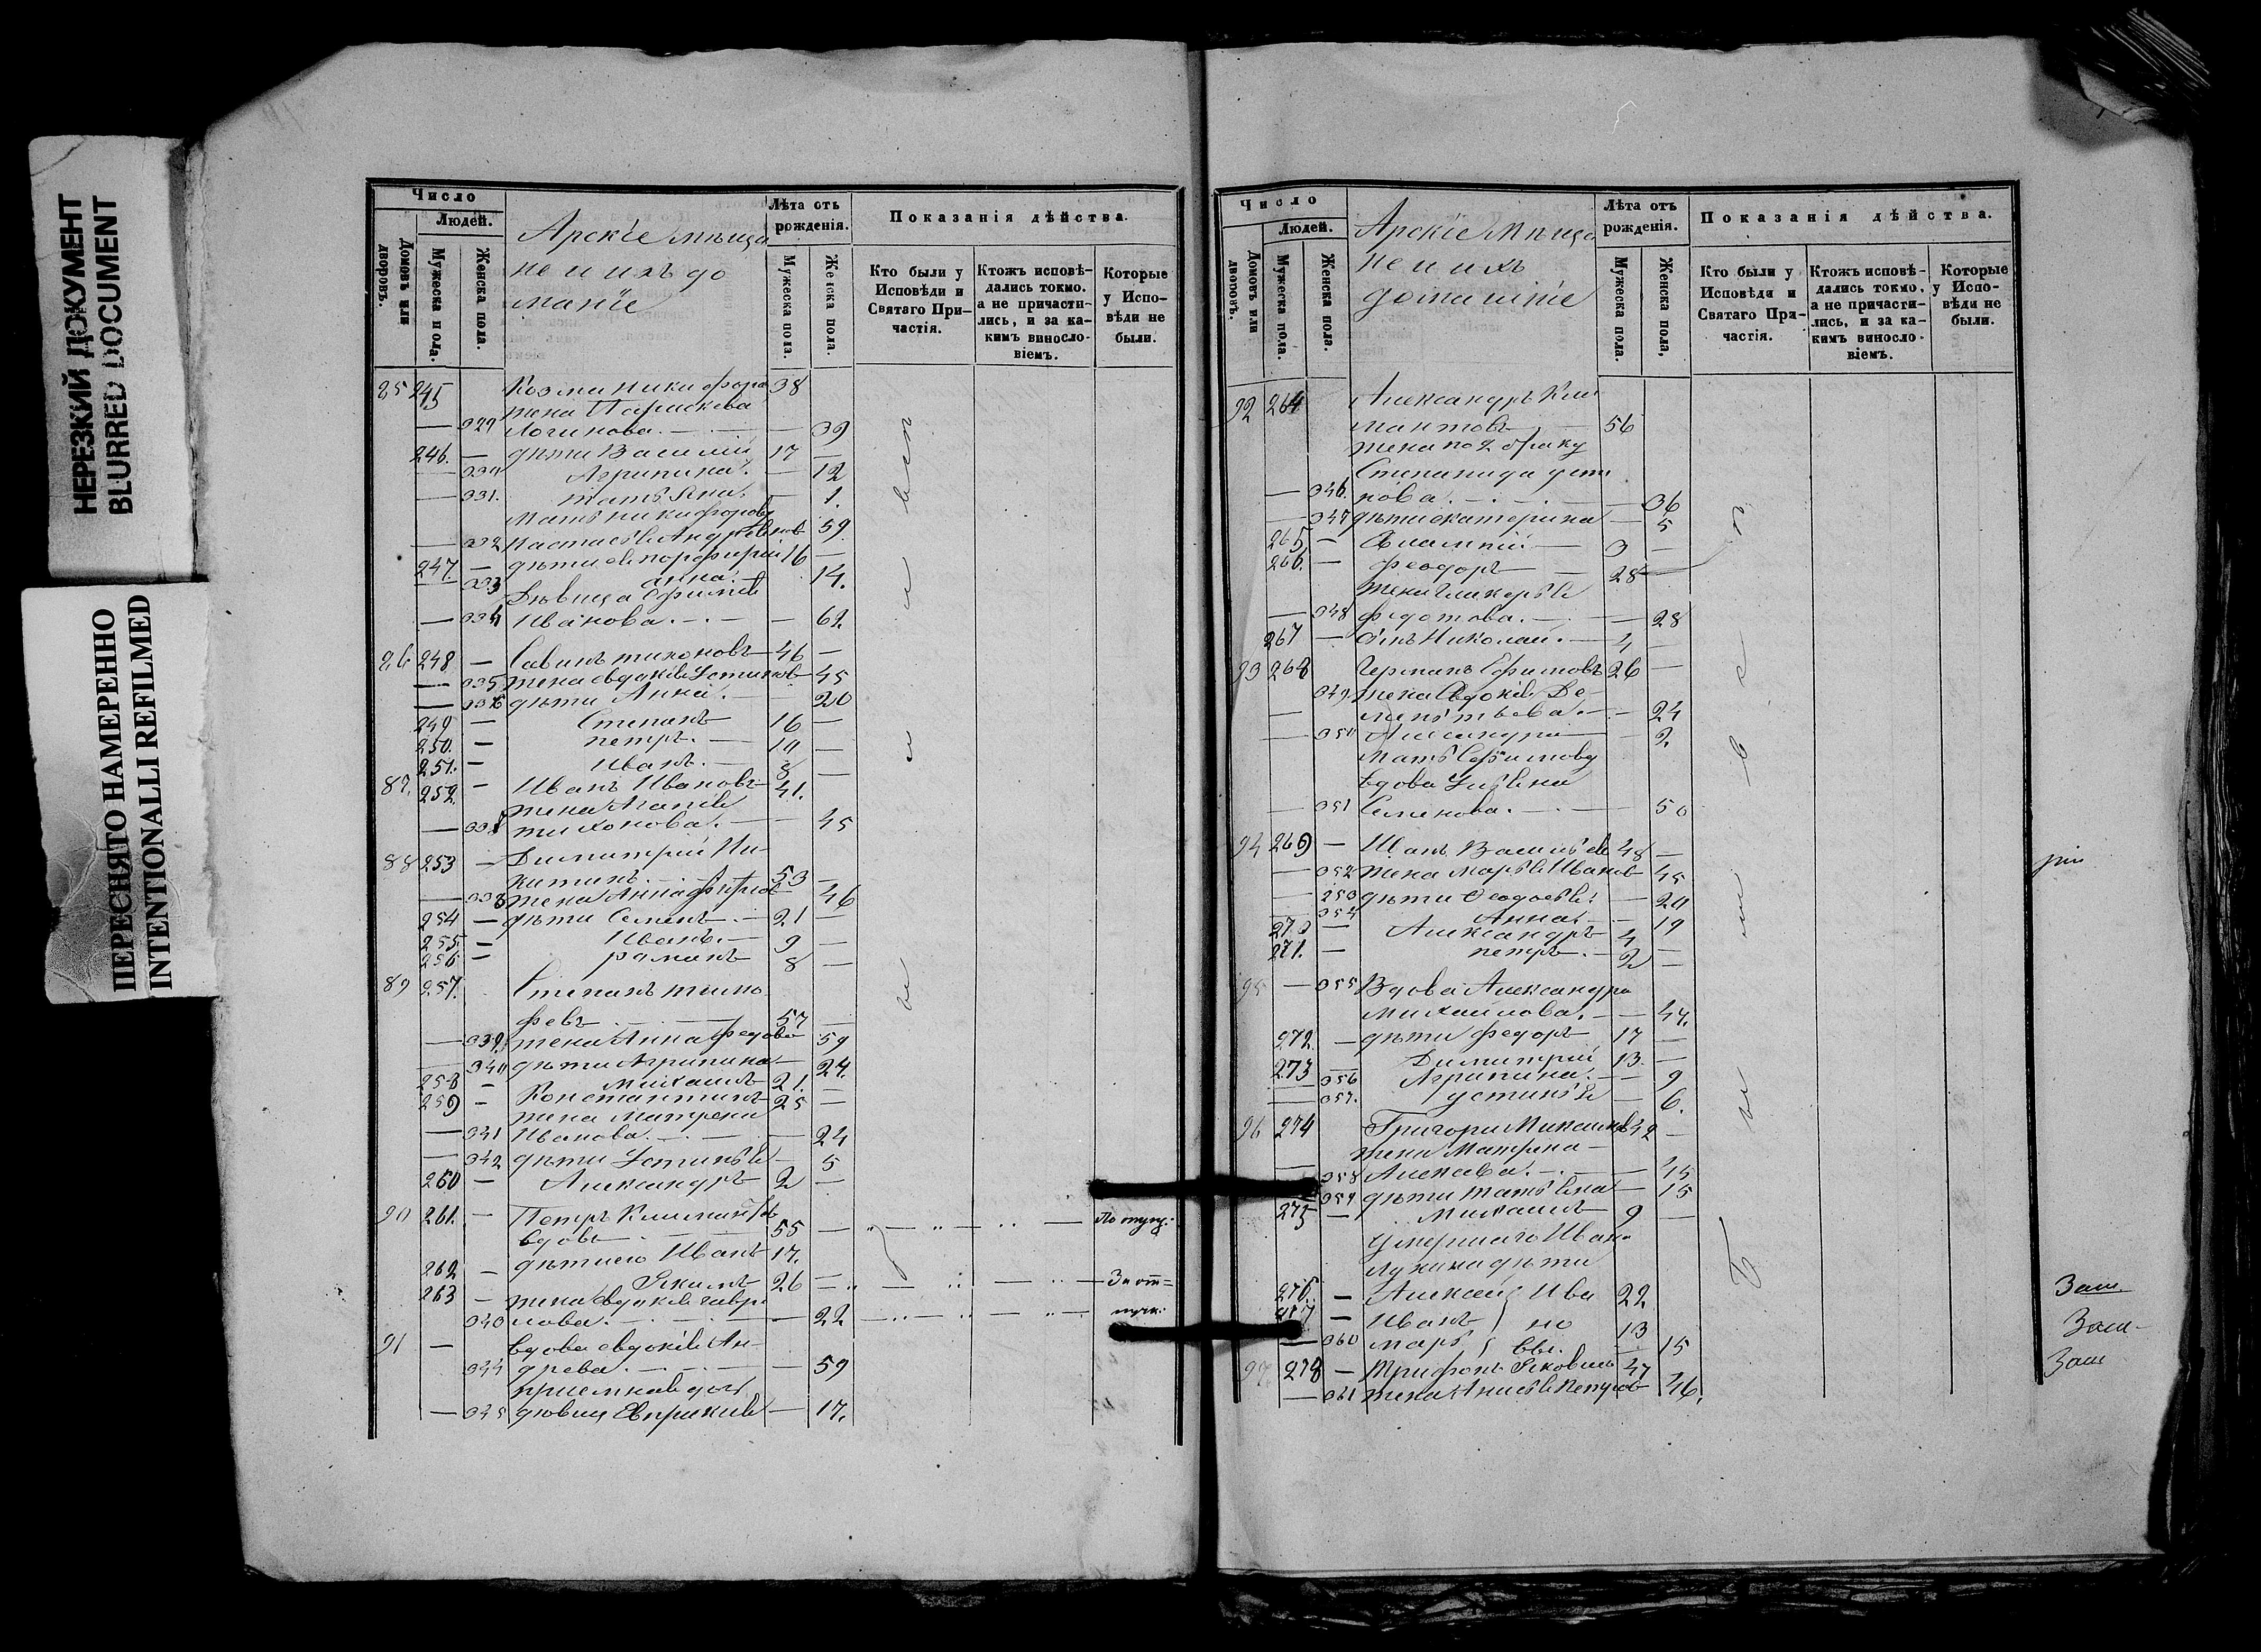 НЕРЕЗКИЙ ДОКУМЕНТ
BLURRED DOCUMENT
ПЕРЕСНЯТО НАМЕРЕННО
INTENTIONALLI REFILMED
Число
Людей.
Домовъ или дворовъ.
Мужеска пола.
Женска пола.
Арскіе мѣща
не и ихъ до
маніе
Лѣта отъ рожденія.
Мужеска пола.
Женска пола.
Показанія дѣйства.
Кто были у Исповѣди и Святаго Причастія.
Ктожъ исповѣдались токмо, а не причастились, и за какимъ винословіемъ.
Которые у Исповѣди не были.
85 245 Козма Никифоро 38
жена Парискева
— 329 Логинова — 39
246. — дѣти Василій 17 —
— 330 Агрипина — 12
— 331. татьяна — 1.
Мать Никифорову
— 332 Настасья Андреевнов 59.
247. — дѣти ея порфирий 16 —
— 333 анна. — 14.
Дѣвица Ефимія
— 334 Иванова — 62.
86 248 — Савинъ тихоновъ 46 —
— 335 жена евдокія Устинов 45
— 336 дѣти Анна. — 20
249 — Степанъ 16 —
250. — петръ. 10 —
251. — Иванъ. 8 —
87. 252. — Иванъ Ивановъ 41.
жена Агапія
— 337 тихонова. — 45
88 253 — Димитрій Ни-
китинъ 53 —
— 338 жена Анна 46
254 — дѣти Семенъ 21 —
255. — Иванъ. 9 —
256 — романъ 8 —
89 257. Степанъ тимо
февъ 57 —
— 339. жена Анна федово 59
— 340 дѣти Агрипина — 24.
258 — Михаилъ 21. —
259 — Константинъ 25 —
жена Матрена
— 341 Иванова. — 24
— 342 дѣти Устинья — 5
260 — Александръ 2 —
90 261. — Петръ
вдовъ 55 —
262 — дѣти его Иванъ 17.
263 — Якимъ 26 —
жена Евдокія гаври
343 лова. — 22
За от=
пуск:
91 — вдова евдокія Ан-
344 древа. — 59
приемная дочь
— 345 дѣвица Евпраксія — 17.
Число
Людей.
Домовъ или дворовъ.
Мужеска пола.
Женска пола.
Арскіе Мѣща
не и ихъ
домашніе
Лѣта отъ рожденія.
Мужеска пола.
Женска пола,
Показанія дѣйства.
Кто были у Исповѣди и Святаго Причастія.
Ктожъ исповѣдались токмо, а не причастились, и за какимъ винословіемъ.
Которые у Исповѣди не были.
92 264 Александръ Кли
мантовъ 56
жена по 2 браку
Степанида усти
— 346. нова. — 36
— 347 дѣти екатерина — 5
265 — 3 —
266. — феодоръ 28
жена гликерья
— 348 федотова. — 28
267 — сынъ Николай. 4 —
93 268 Германъ Ефимовъ 26 —
349 жена Евдокія Де-
— ментьева. — 24
— 350 Александра — 2.
Мать Ефимову
вдова Ульяна
— 351 Семенова. — 50
94 269 — Иванъ Васильев 48 —
— 352 жена Марья Иванов 45
— 353 дѣти Феодосья — 20
— 354 Анна — 19
270 — Александръ 4
271. — петръ. 2 —
95 — 355 Вдова Александра
Михаилова. — 47.
272. — дѣти федоръ 17 —
273 — Димитрий 13. —
— 356 Агрипина. — 9
— 357. устинья — 6.
96 274 Григори Михаилов 42 —
жена Матрена
— 358 Алексева. — 45
— 359 дѣти татьяна — 15
275 — Михаилъ 9 —
умершаго Иван.
Лукина дѣти
276. — Алексей Ива 22
277 — Иванъ но 13
— 360 марья вы. — 15
97. 278 — Трифонъ Яковлев 47
— 361 жена Анисья Петров 46.
Заш.
Заш
Заш